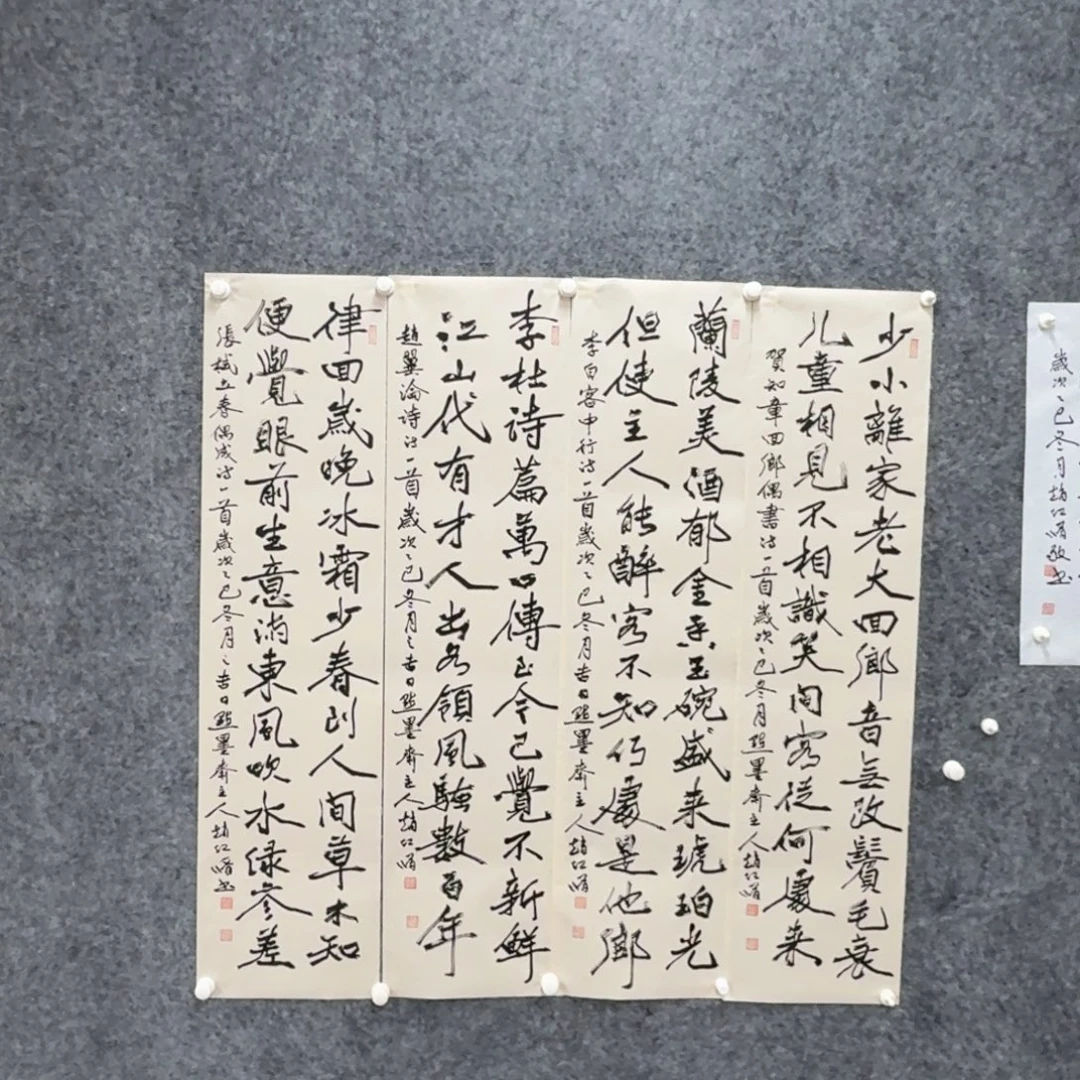 少小離家老大回鄉音無改鬢毛衰
儿童相見不相識笑問客從何處来
賀知章回鄉偶書詩一首歲次乙巳冬月點墨齋主人趙江
蘭陵美酒郁金香玉碗盛来琥珀光
但使主人能醉客不知何處是他鄉
李白客中行詩一首歲次乙巳冬月吉日點墨齋主人趙江
李杜詩篇萬口傳至今已覺不新鮮
江山代有才人出各領風騷數百年
趙翼論詩詩一首歲次乙巳冬月之吉日點墨齋主人趙江
律回歲晚冰霜少春到人間草木知
便覺眼前生意滿東風吹水绿參差
張栻立春偶成詩一首歲次乙巳冬月之吉日點墨齋主人趙江書
歲次乙巳冬月趙江敬書